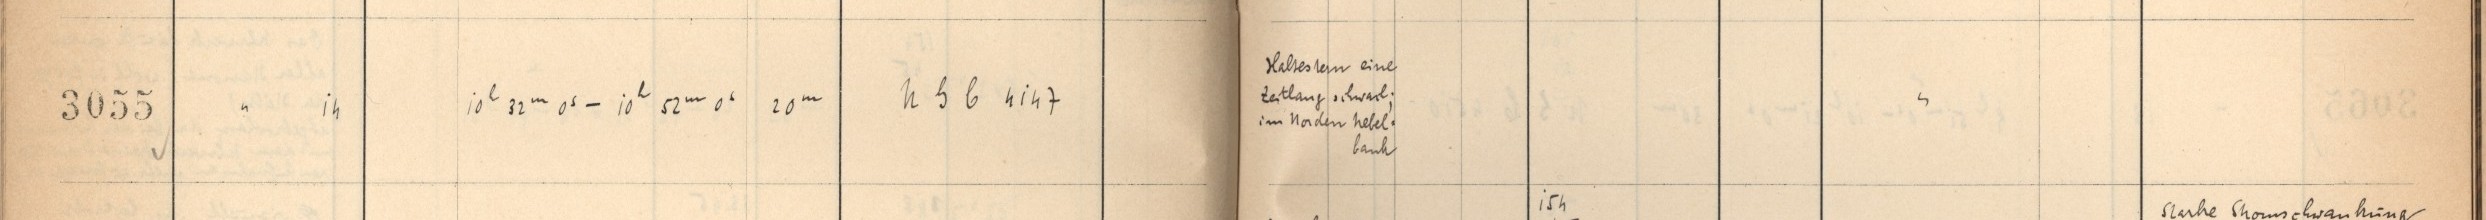 3055 " 14 10h 32m 0s – 10h 52m 0s 20m 4147
Haltestern eine
Zeitlang schwach;
im Norden Nebel-
bank
154
starke Stromschwankung